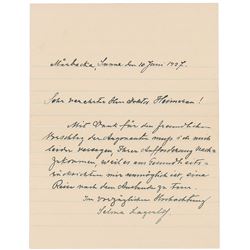 Mårbacka, Sunne den 10 Juni 1927.
Sehr verehrter Herr Doktor
Mit Dank für den freundlichen
Vorschlag der Argonauten muss ich mich
leider versagen, Ihrer Aufforderung nach-
zukommen, weil es aus Gesundheits-
rücksichten mir unmöglich ist, eine
Reise nach dem Auslande zu tun.
In vorzüglicher Hochachtung
Selma Lagerlöf